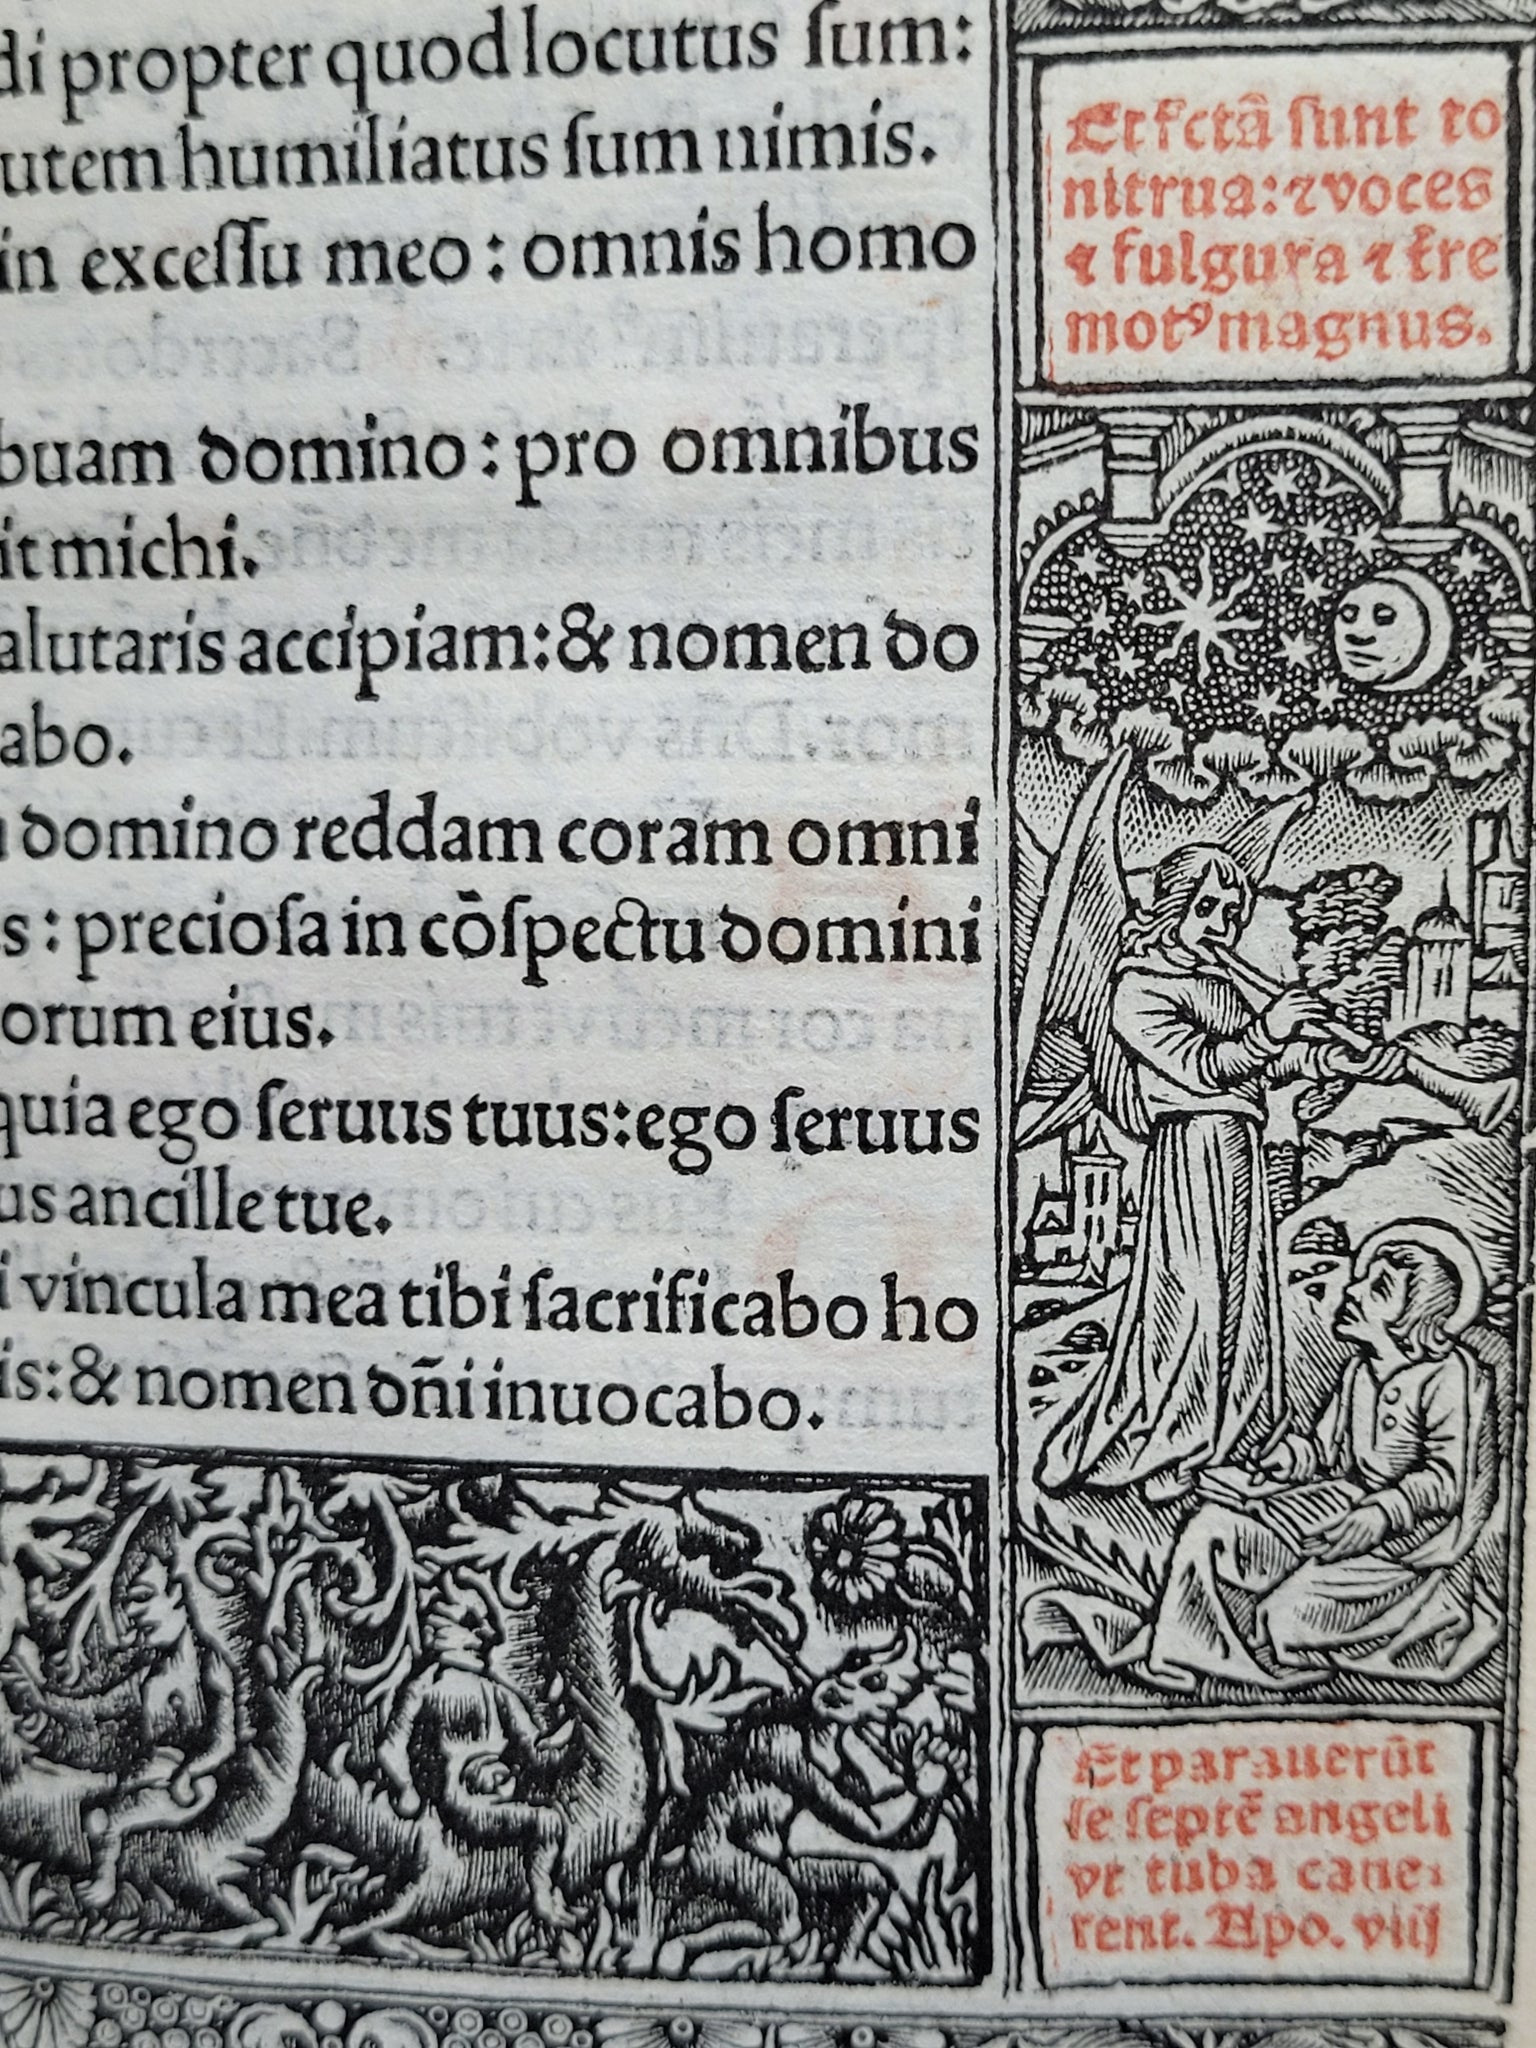 di propter quod locutus ſum:
utem humiliatus ſum nimis.
in exceſſu meo : omnis homo
buam domino : pro omnibus
it michi.
alutaris accipiam: & nomen do
abo.
domino reddam coram omni
s : precioſa in cōſpectu domini
orum eius.
quia ego ſeruus tuus: ego ſeruus
us ancille tue.
i vincula mea tibi ſacrificabo ho
is: & nomen dñi inuocabo.
Et fctā ſunt to
nitrua: ⁊ voces
⁊ fulgura ⁊ t̄re
motꝰ magnus.
Et parauerūt
ſe ſeptē angeli
vt tuba cane⸗
rent. Apo. viij